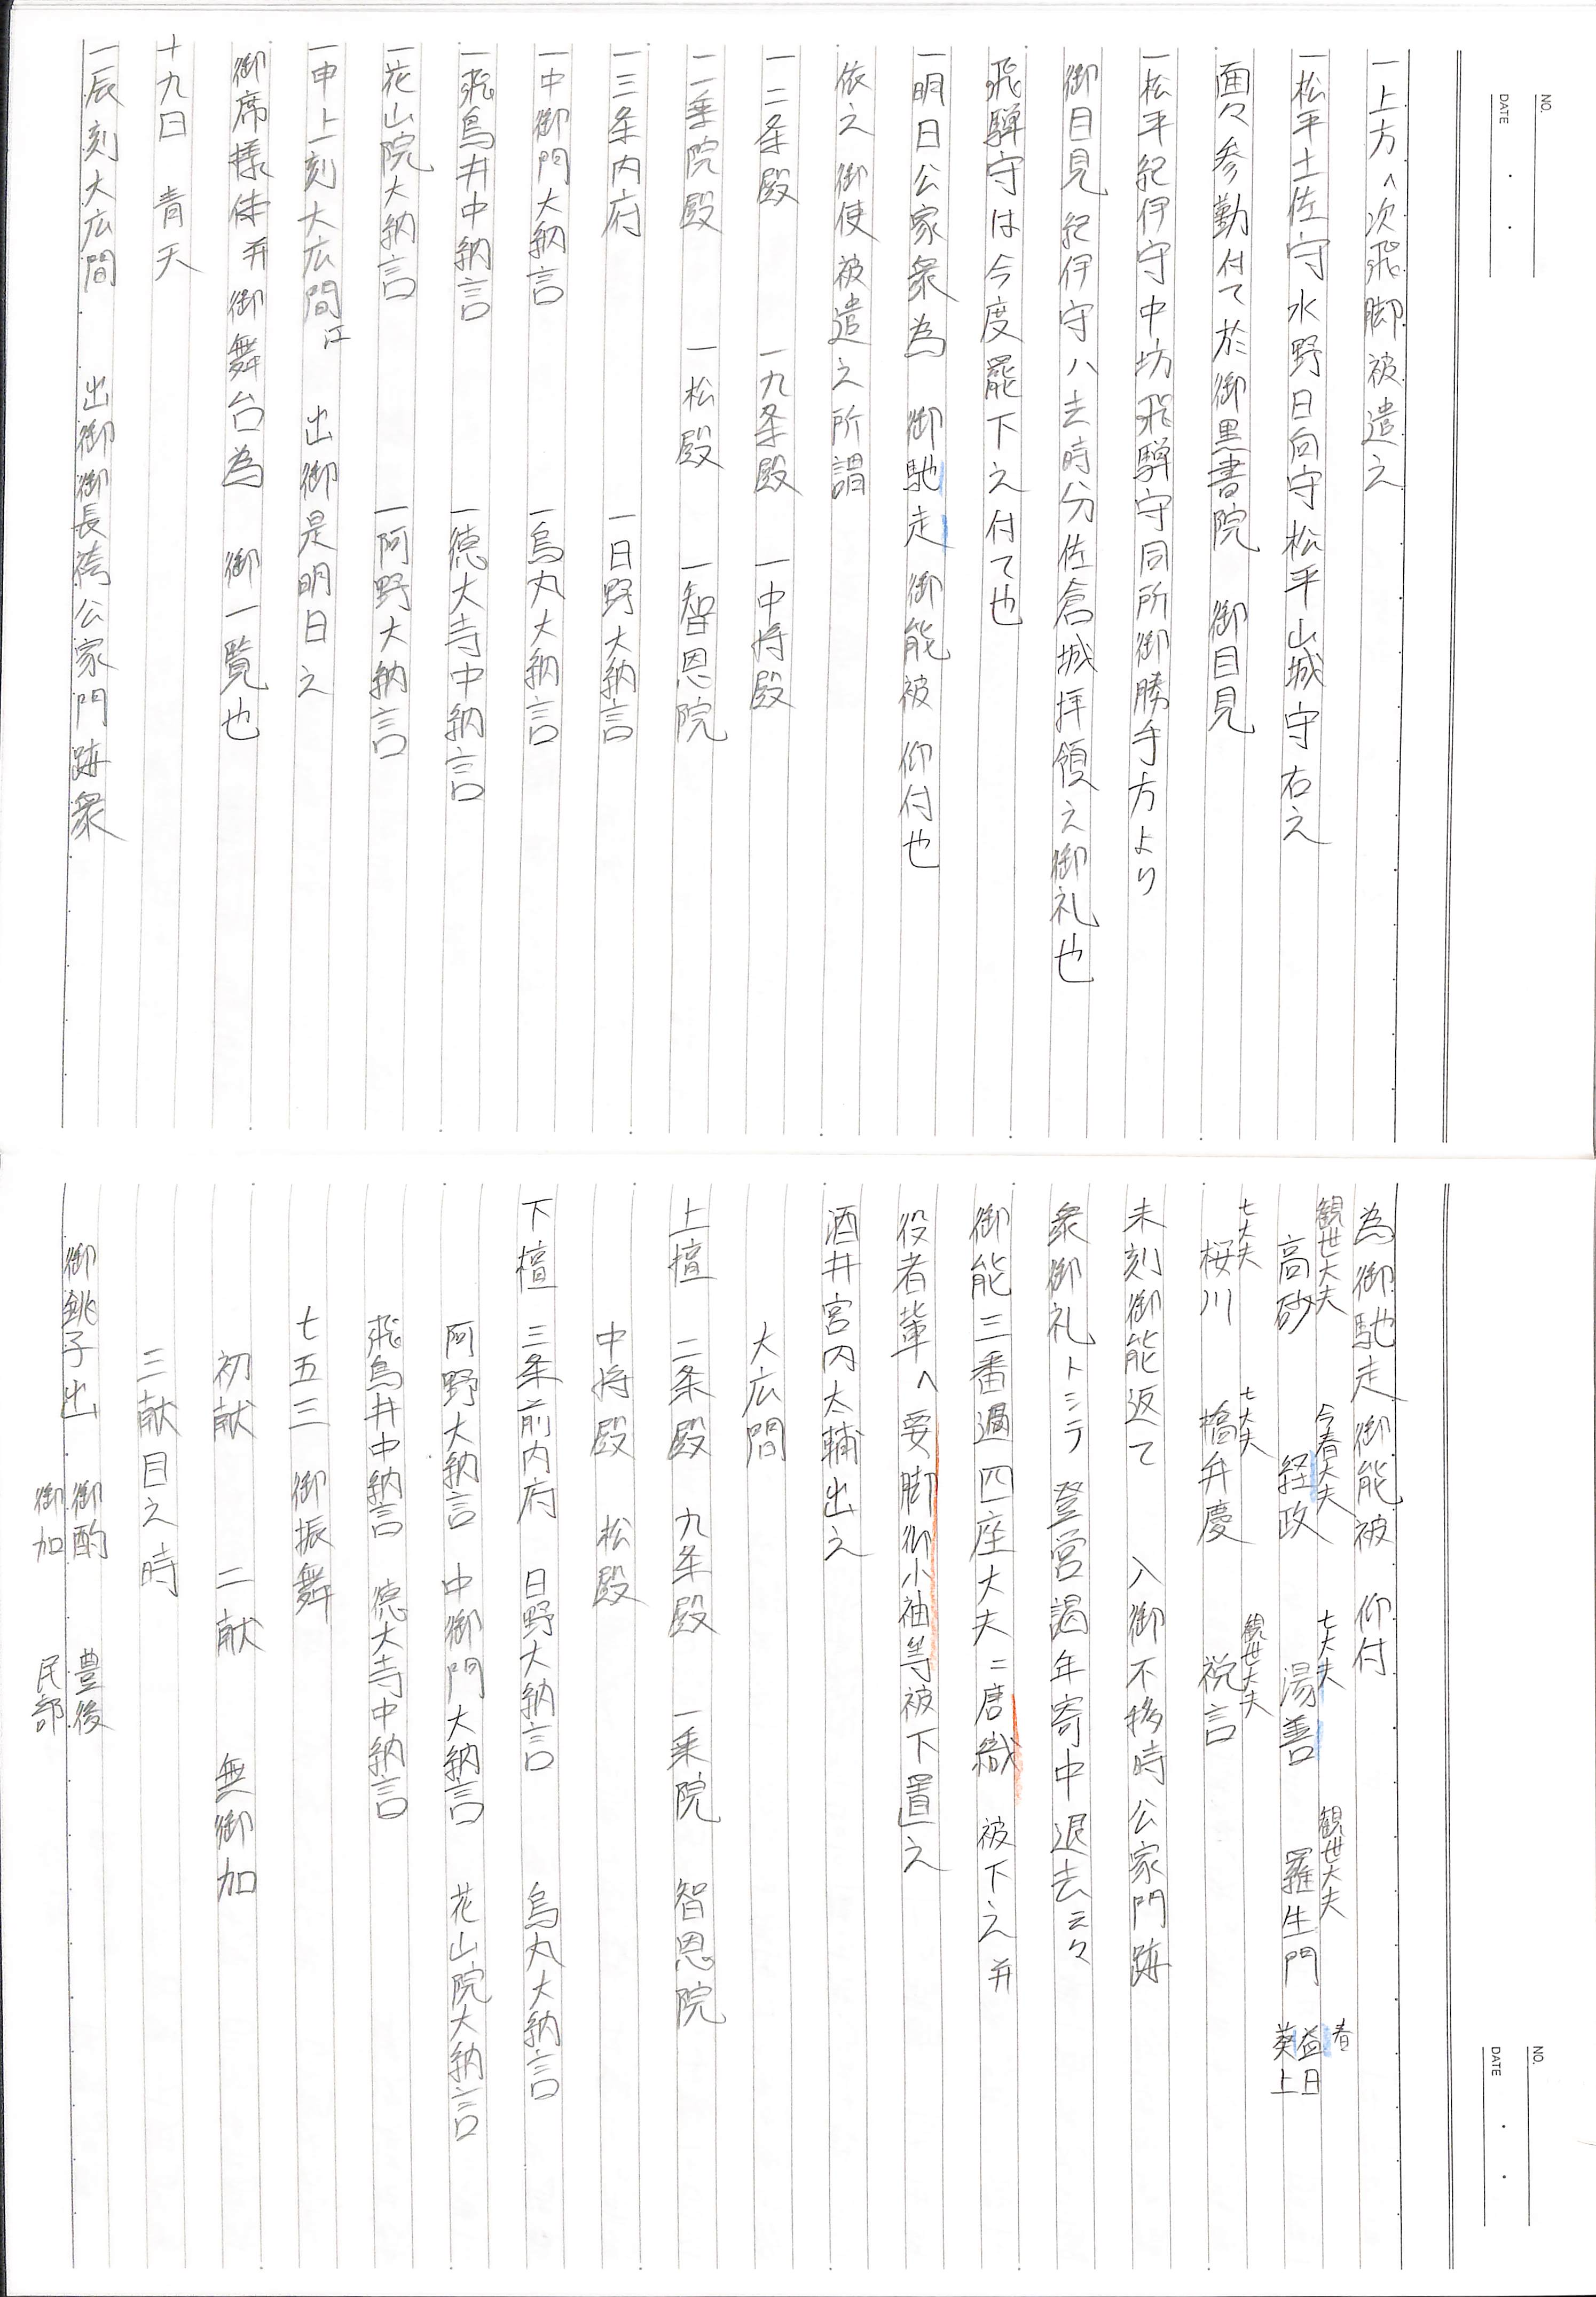 NO.
DATE
一上方へ次飛脚被遣之
一松平土佐守水野日向守松平山城守右之
面々参勤付て於御黒書院 御目見
一松平紀伊守中坊飛騨守同所御勝手方より
御目見紀伊守ハ去時分佐倉城拝領之御礼也
飛騨守は今度罷下之付て也
一明日公家衆為 御馳走御能被 仰付也
依之御使被遣之所謂
一二条殿 一九条殿 一中将殿
一一乗院殿 一松殿 一智恩院
一三条内府 一日野大納言
一中御門大納言 一烏丸大納言
一飛鳥井中納言 一徳大寺中納言
一花山院大納言 一阿野大納言
一申上刻大広間江 出御是明日之
御席様体并御舞台為 御一覧也
十九日 青天
一辰刻大広間 出御御長袴公家門跡衆
NO.
DATE
為御馳走御能被 仰付
観世大夫 今春大夫 七大夫 観世大夫 春日
高砂 経政 湯善 羅生門 葵上
七大夫 七大夫 観世大夫
桜川 橋弁慶 祝言
未刻御能返て 入御不移時公家門跡
衆御礼トシテ登営謁年寄中退去云々
御能三番過四座大夫ニ唐織 被下之并
役者輩へ要脚御小袖等被下置之
酒井宮内太輔出之
大広間
上檀 二条殿 九条殿 一乗院 智恩院
中将殿 松殿
下檀 三条前内府 日野大納言 烏丸大納言
阿野大納言 中御門大納言 花山院大納言
飛鳥井中納言 徳大寺中納言
七五三 御振舞
初献 二献 無御加
三献目之時
御銚子出 御酌 豊後
御加 民部